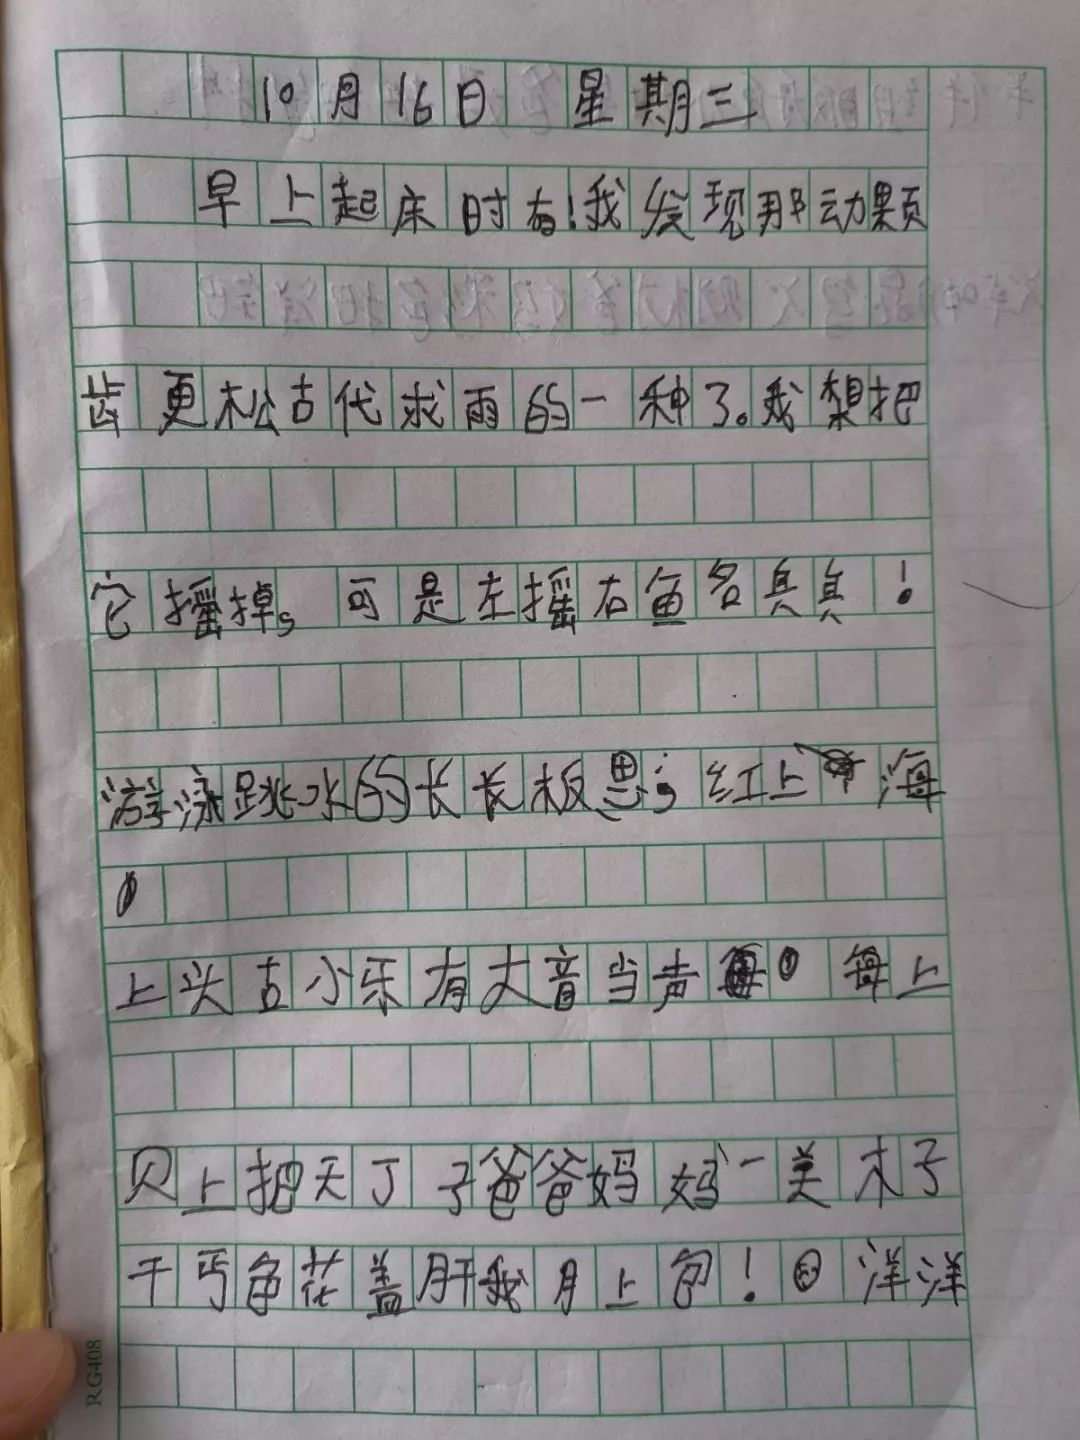 10月16日 星期三
早上起床时右!我发现那动颗
齿更松古代求雨的一种了。我想把
它摇掉。可是左摇右鱼名真真!
游泳跳水的长长板思;红上海
上头古小乐有大音当声每上
贝上把天丁子爸爸妈妈一美木子
干丐色花盖肝我月上包!洋洋
RG408